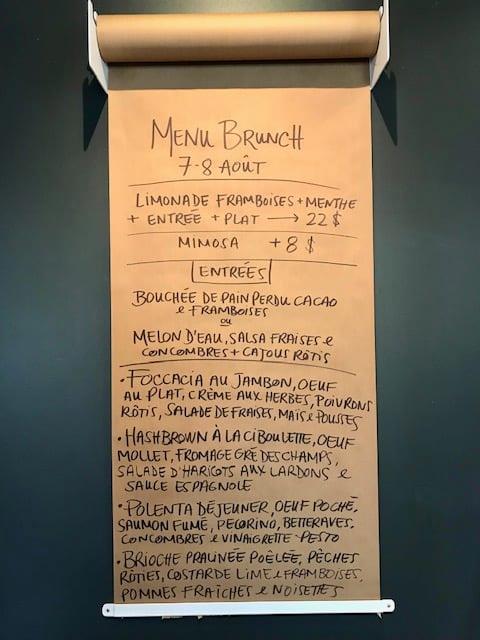 MENU BRUNCH
7-8 AOÛT
LIMONADE FRAMBOISES + MENTHE
+ ENTRÉE + PLAT → 22 $
MIMOSA + 8 $
ENTRÉES
BOUCHÉE DE PAIN PERDU CACAO
e FRAMBOISES
ou
MELON D'EAU, SALSA FRAISES e
CONCOMBRES + CAJOUS RÔTIS
• FOCCACIA AU JAMBON, OEUF
AU PLAT, CRÈME AUX HERBES, POIVRONS
RÔTIS, SALADE DE FRAISES, MAIS e POUSSES
• HASHBROWN À LA CIBOULETTE, OEUF
MOLLET, FROMAGE GRÉ DES CHAMPS,
SALADE D'HARICOTS AUX LARDONS e
SAUCE ESPAGNOLE
• POLENTA DÉJEUNER, OEUF POCHÉ,
SAUMON FUMÉ, PECORINO, BETTERAVES,
CONCOMBRES e VINAIGRETTE PESTO
• BRIOCHE PRALINÉE POÊLÉE, PÊCHES
RÔTIES, COSTARDE LIME e FRAMBOISES,
POMMES FRAÎCHES e NOISETTES